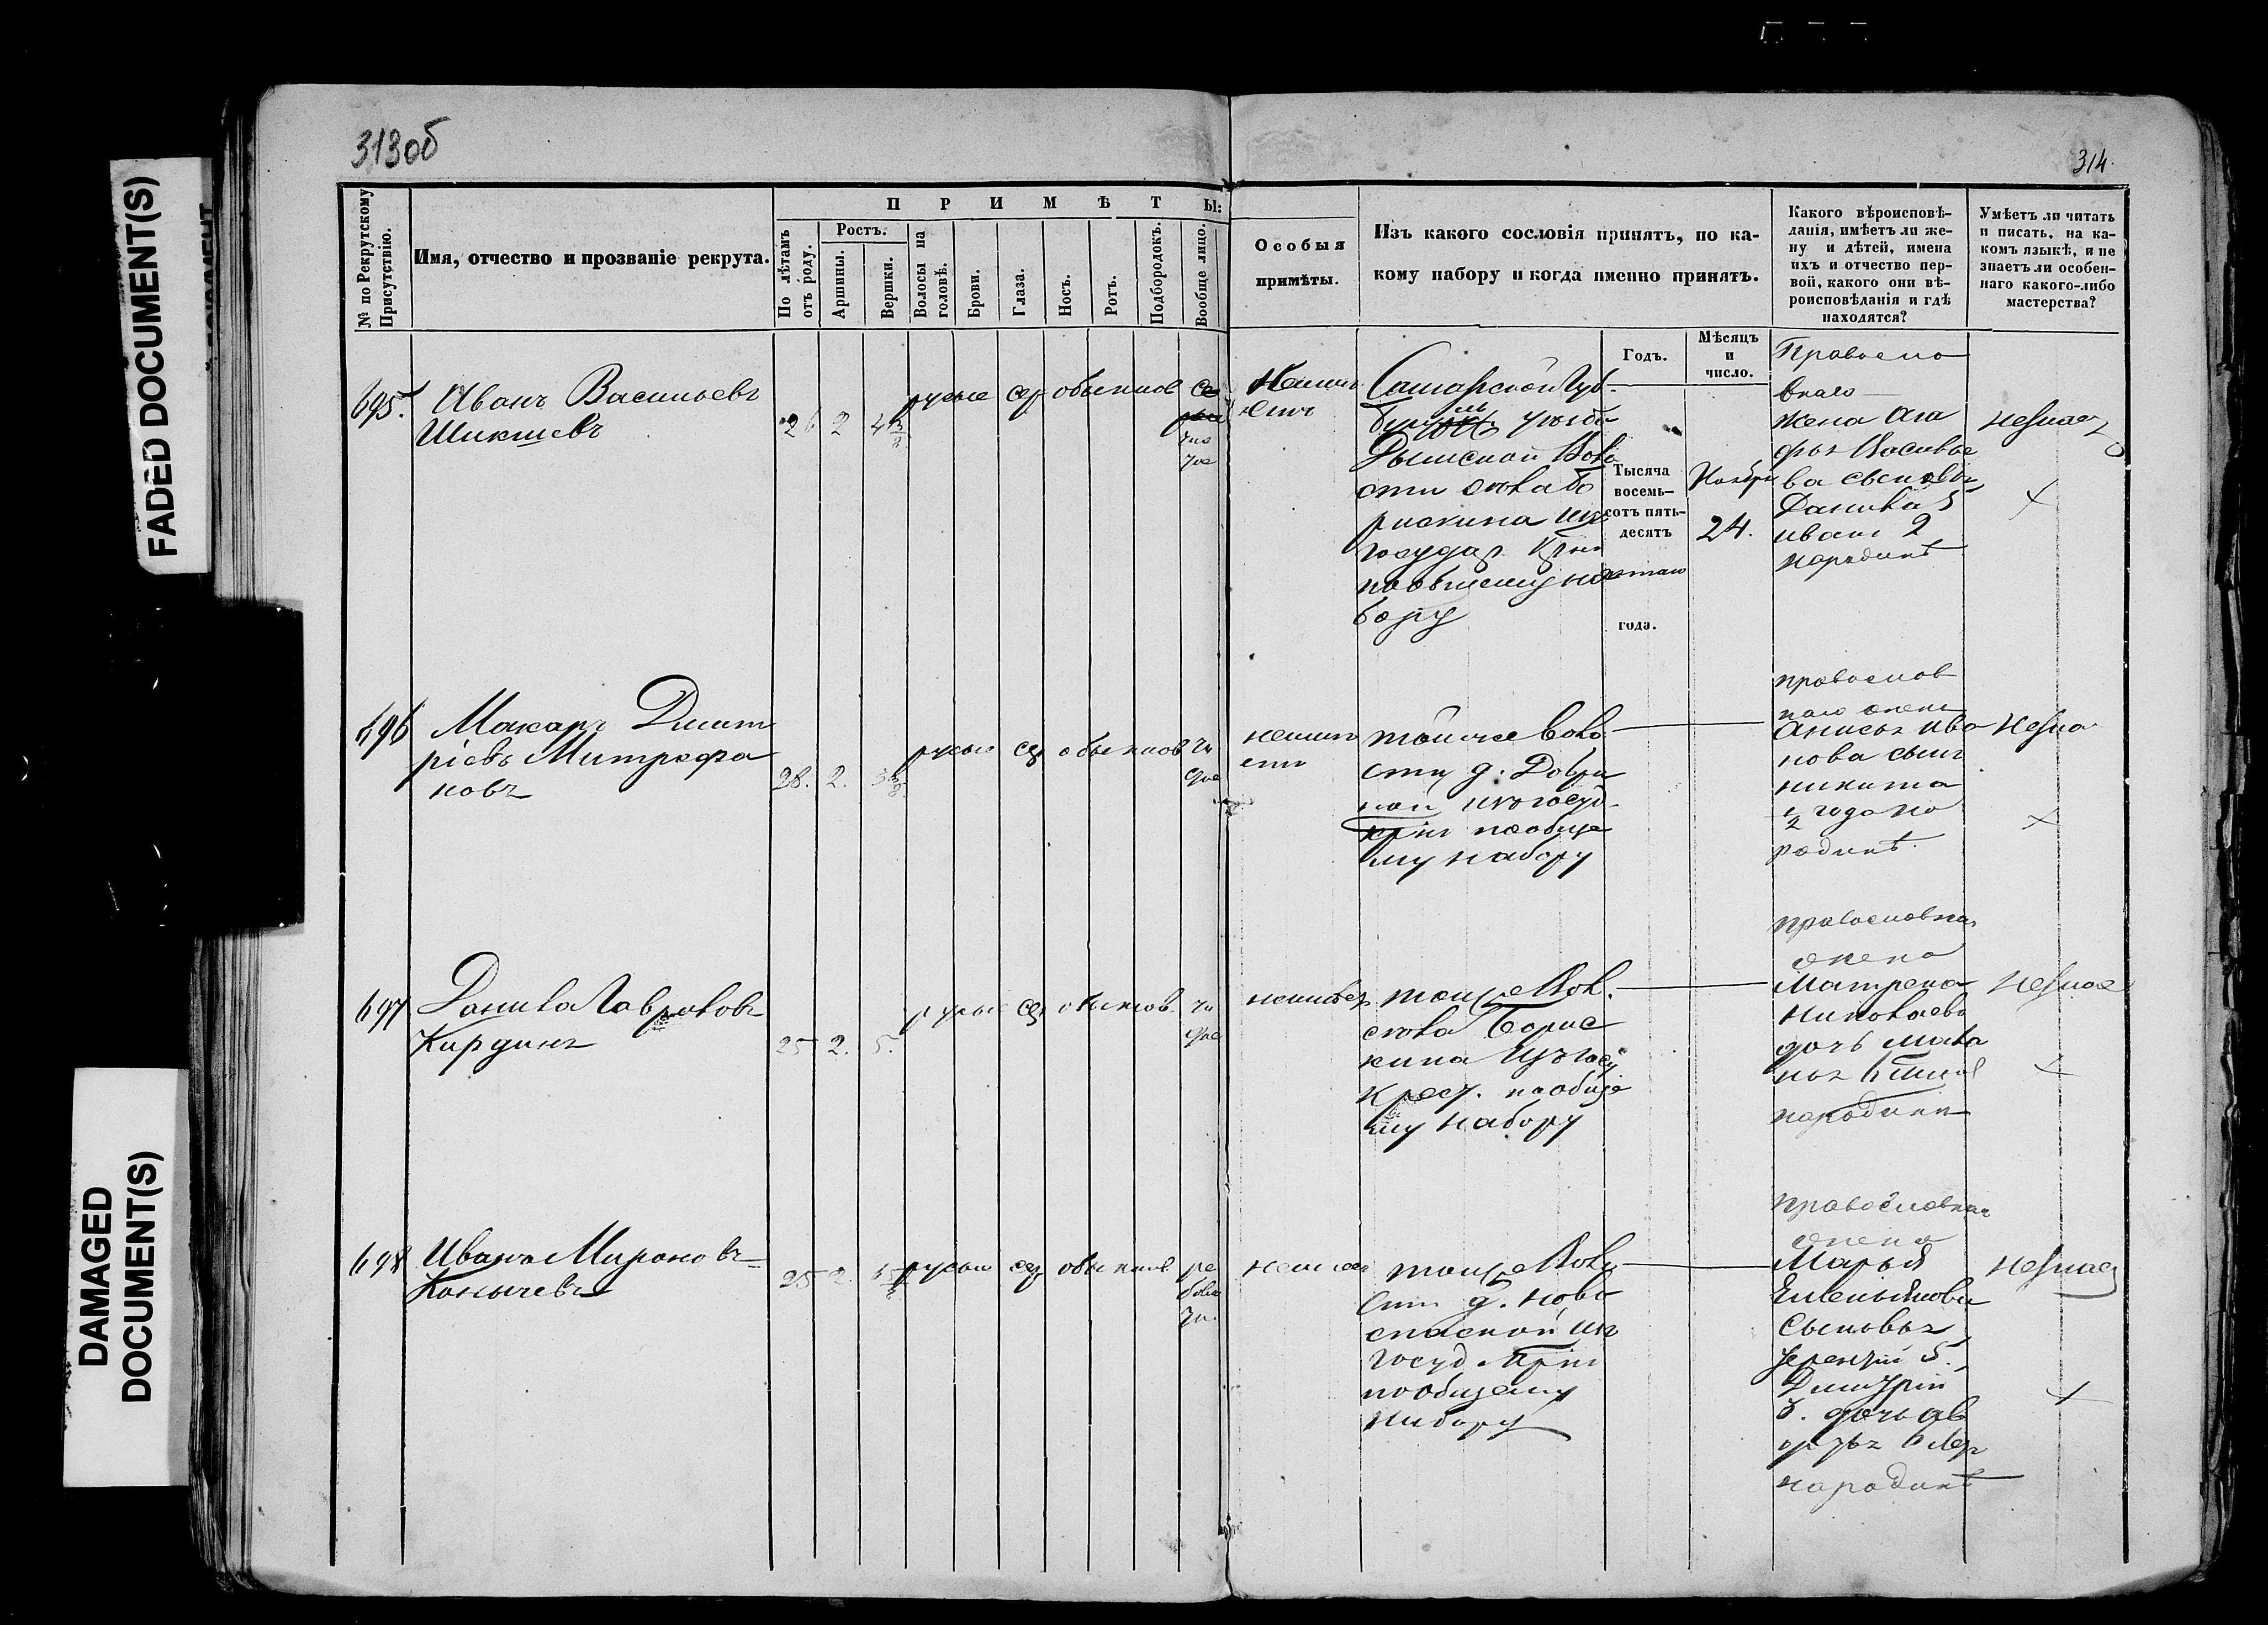 FADED DOCUMENT(S)
DAMAGED
DOCUMENT(S)
313об
314.
№ по Рекрутскому
Присутствію.
Имя, отчество и прозваніе рекрута.
ПРИМѢТЫ:
По лѣтамъ
отъ роду.
Ростъ.
Аршины.
Вершки.
Волосы на
головѣ.
Брови.
Глаза.
Носъ.
Ротъ.
Подбородокъ.
Вообще лицо.
Особыя
примѣты.
Изъ какого сословія принятъ, по ка-
кому набору и когда именно принятъ.
Какого вѣроисповѣ-
данія, имѣетъ ли же-
ну и дѣтей, имена
ихъ и отчество пер-
вой, какого они вѣ-
роисповѣданія и гдѣ
находятся?
Умѣетъ ли читать
и писать, на ка-
комъ языкѣ, и не
знаетъ ли особен-
наго какого-либо
мастерства?
Годъ.
Мѣсяцъ
и
число.
695.
Иванъ Васильевъ
Шикшевъ
26
2
4 3/8
русые
сер
обыкнов
Самарской Губ.
уѣзда
Дымской Воло
сти
государ.
набору
Тысяча
восемь-
сотъ пять-
десятъ
года.
Ноября
24.
Правосла
внаго
жена Ага
фья Васильe
ва сыновья
Данила 5
иванъ 2
народинѣ
незнаетъ
696
Макаръ Дмит
ріевъ Митрофа
новъ
28.
2.
русые
сер
обыкнов
чи
стое
тойже воло
сти д. Добри
ной
пообще
му набору
православ
наго жена
Анисья Ива
нова сынъ
никита
1/2 года на
родинѣ.
незна
697
Данила Гавриловъ
Кирдинъ
25
2.
5.
русые
сер
обыкнов
чи
стое
тойже Вол.
слова Борис
кина Изъ госу
крест. пообще
му набору
православная
жена
Матрена
Николаева
дочь Мала
нья
народинѣ
незнае
698
Иванъ Мироновъ
Конычевъ
25
2
русые
сер
обыкнов
тойже Воло
сти д. Ново
спаской изъ
госуд.
пообщему
набору
православная
жена
Марья
Емельянова
Сыновья
Терентій 5.
Дмитрій
3. дочь
народинѣ
незнаетъ